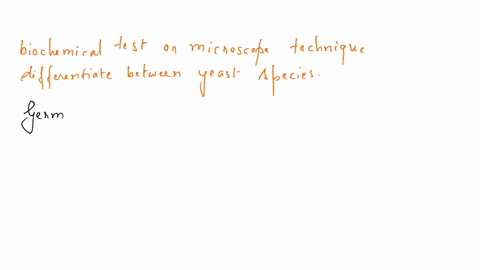 biochemical test on microscope technique
differentiate between yeast species.
Germ